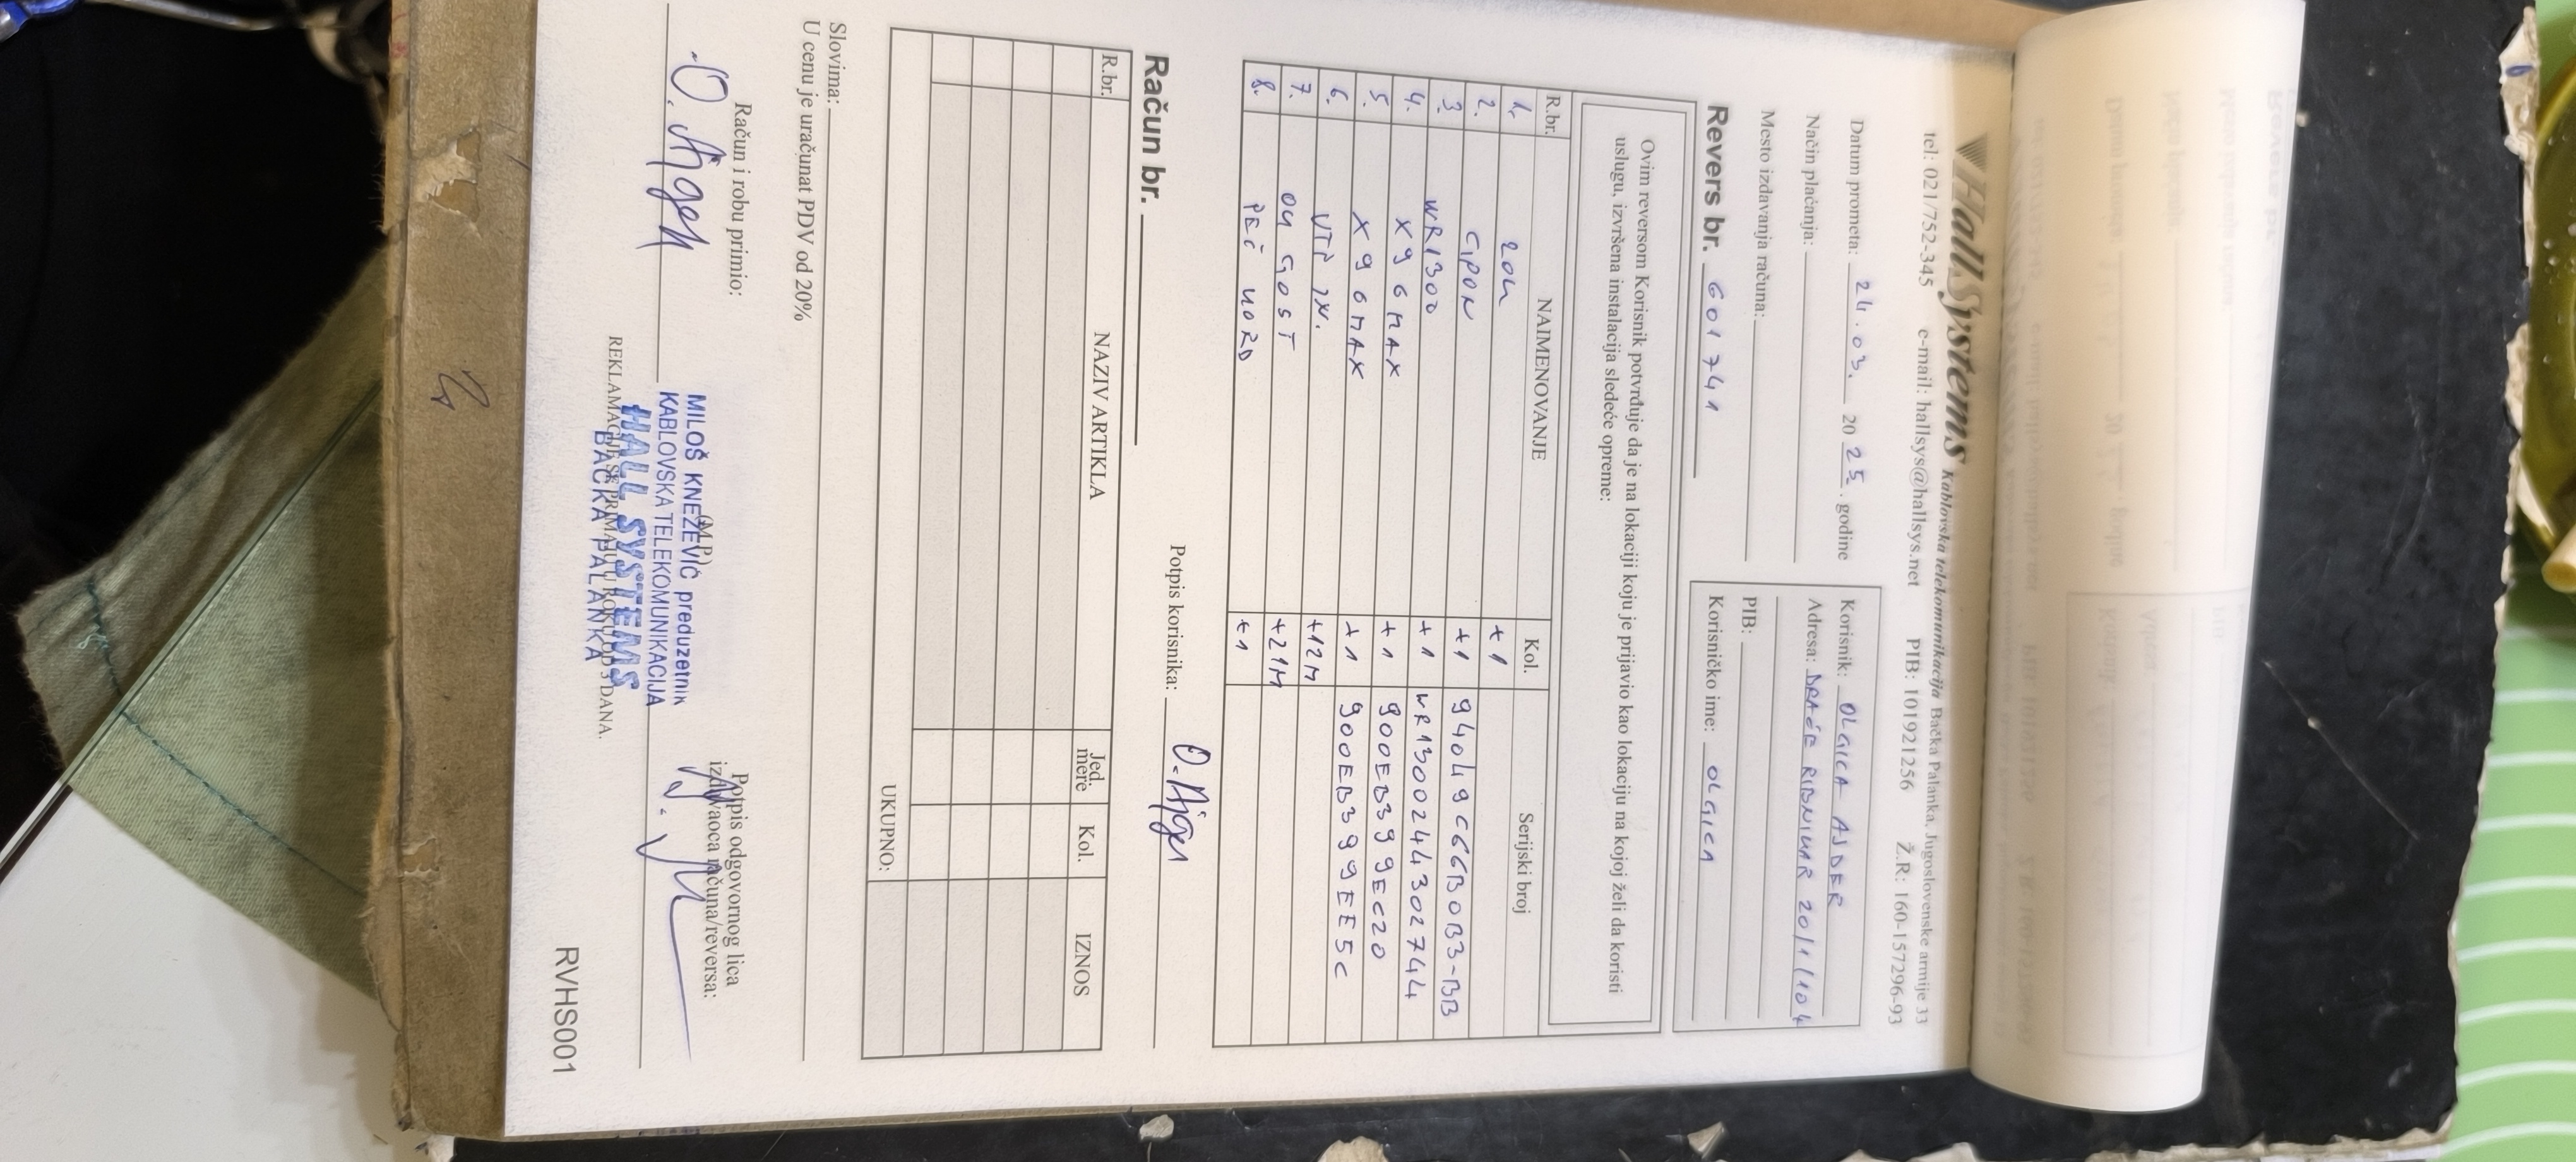 HallSystems Kablovska telekomunikacija Bačka Palanka, Jugoslovenske armije 33
tel: 021/752-345 e-mail: hallsys@hallsys.net PIB: 101921256 Ž.R: 160-157296-93
Datum prometa: 24.03. 2025. godine
Način plaćanja:
Mesto izdavanja računa:
Korisnik: OLGICA AJDER
Adresa: BRAĆE RIBNIKAR 20/1/104
PIB:
Korisničko ime: OLGICA
Revers br. 601741
Ovim reversom Korisnik potvrđuje da je na lokaciji koju je prijavio kao lokaciju na kojoj želi da koristi
uslugu, izvršena instalacija sledeće opreme:
R.br. NAIMENOVANJE Kol. Serijski broj
1. ZON +1
2. GPON +1 94049C66B0B3-BB
3. WR1300 +1 WR1300244302744
4. X96MAX +1 900EB399EC20
5. X96MAX +1 900EB399EE5C
6. UTP IN. +12M
7. 04 GOST +21M
8. PEČ KORD +1
Potpis korisnika: O. Ajder
Račun br.
R.br. NAZIV ARTIKLA Jed. mere Kol. IZNOS
UKUPNO:
Slovima:
U cenu je uračunat PDV od 20%
Račun i robu primio:
(M.P.)
Potpis odgovornog lica
izdavaoca računa/reversa:
O. Ajder
MILOŠ KNEŽEVIĆ preduzetnik
KABLOVSKA TELEKOMUNIKACIJA
HALL SYSTEMS
BAČKA PALANKA
REKLAMACIJE SE PRIMAJU U ROKU OD 3 DANA.
RVHS001